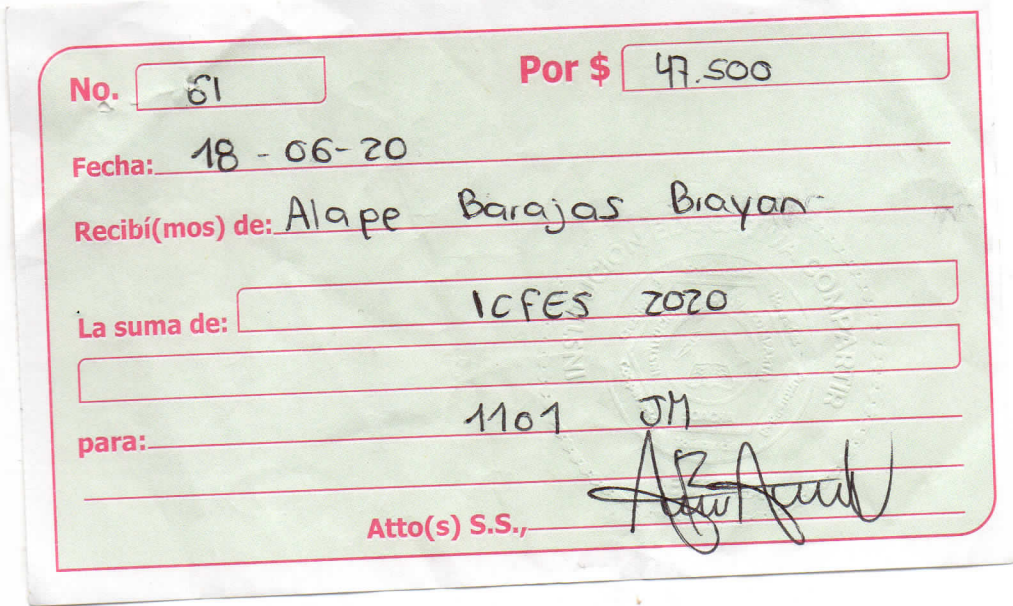 No. 61 Por $ 47.500
Fecha: 18-06-20
Recibí(mos) de: Alape Barajas Brayan
La suma de: ICFES 2020
para: 1101 JM
Atto(s) S.S.,
COMPARTIR